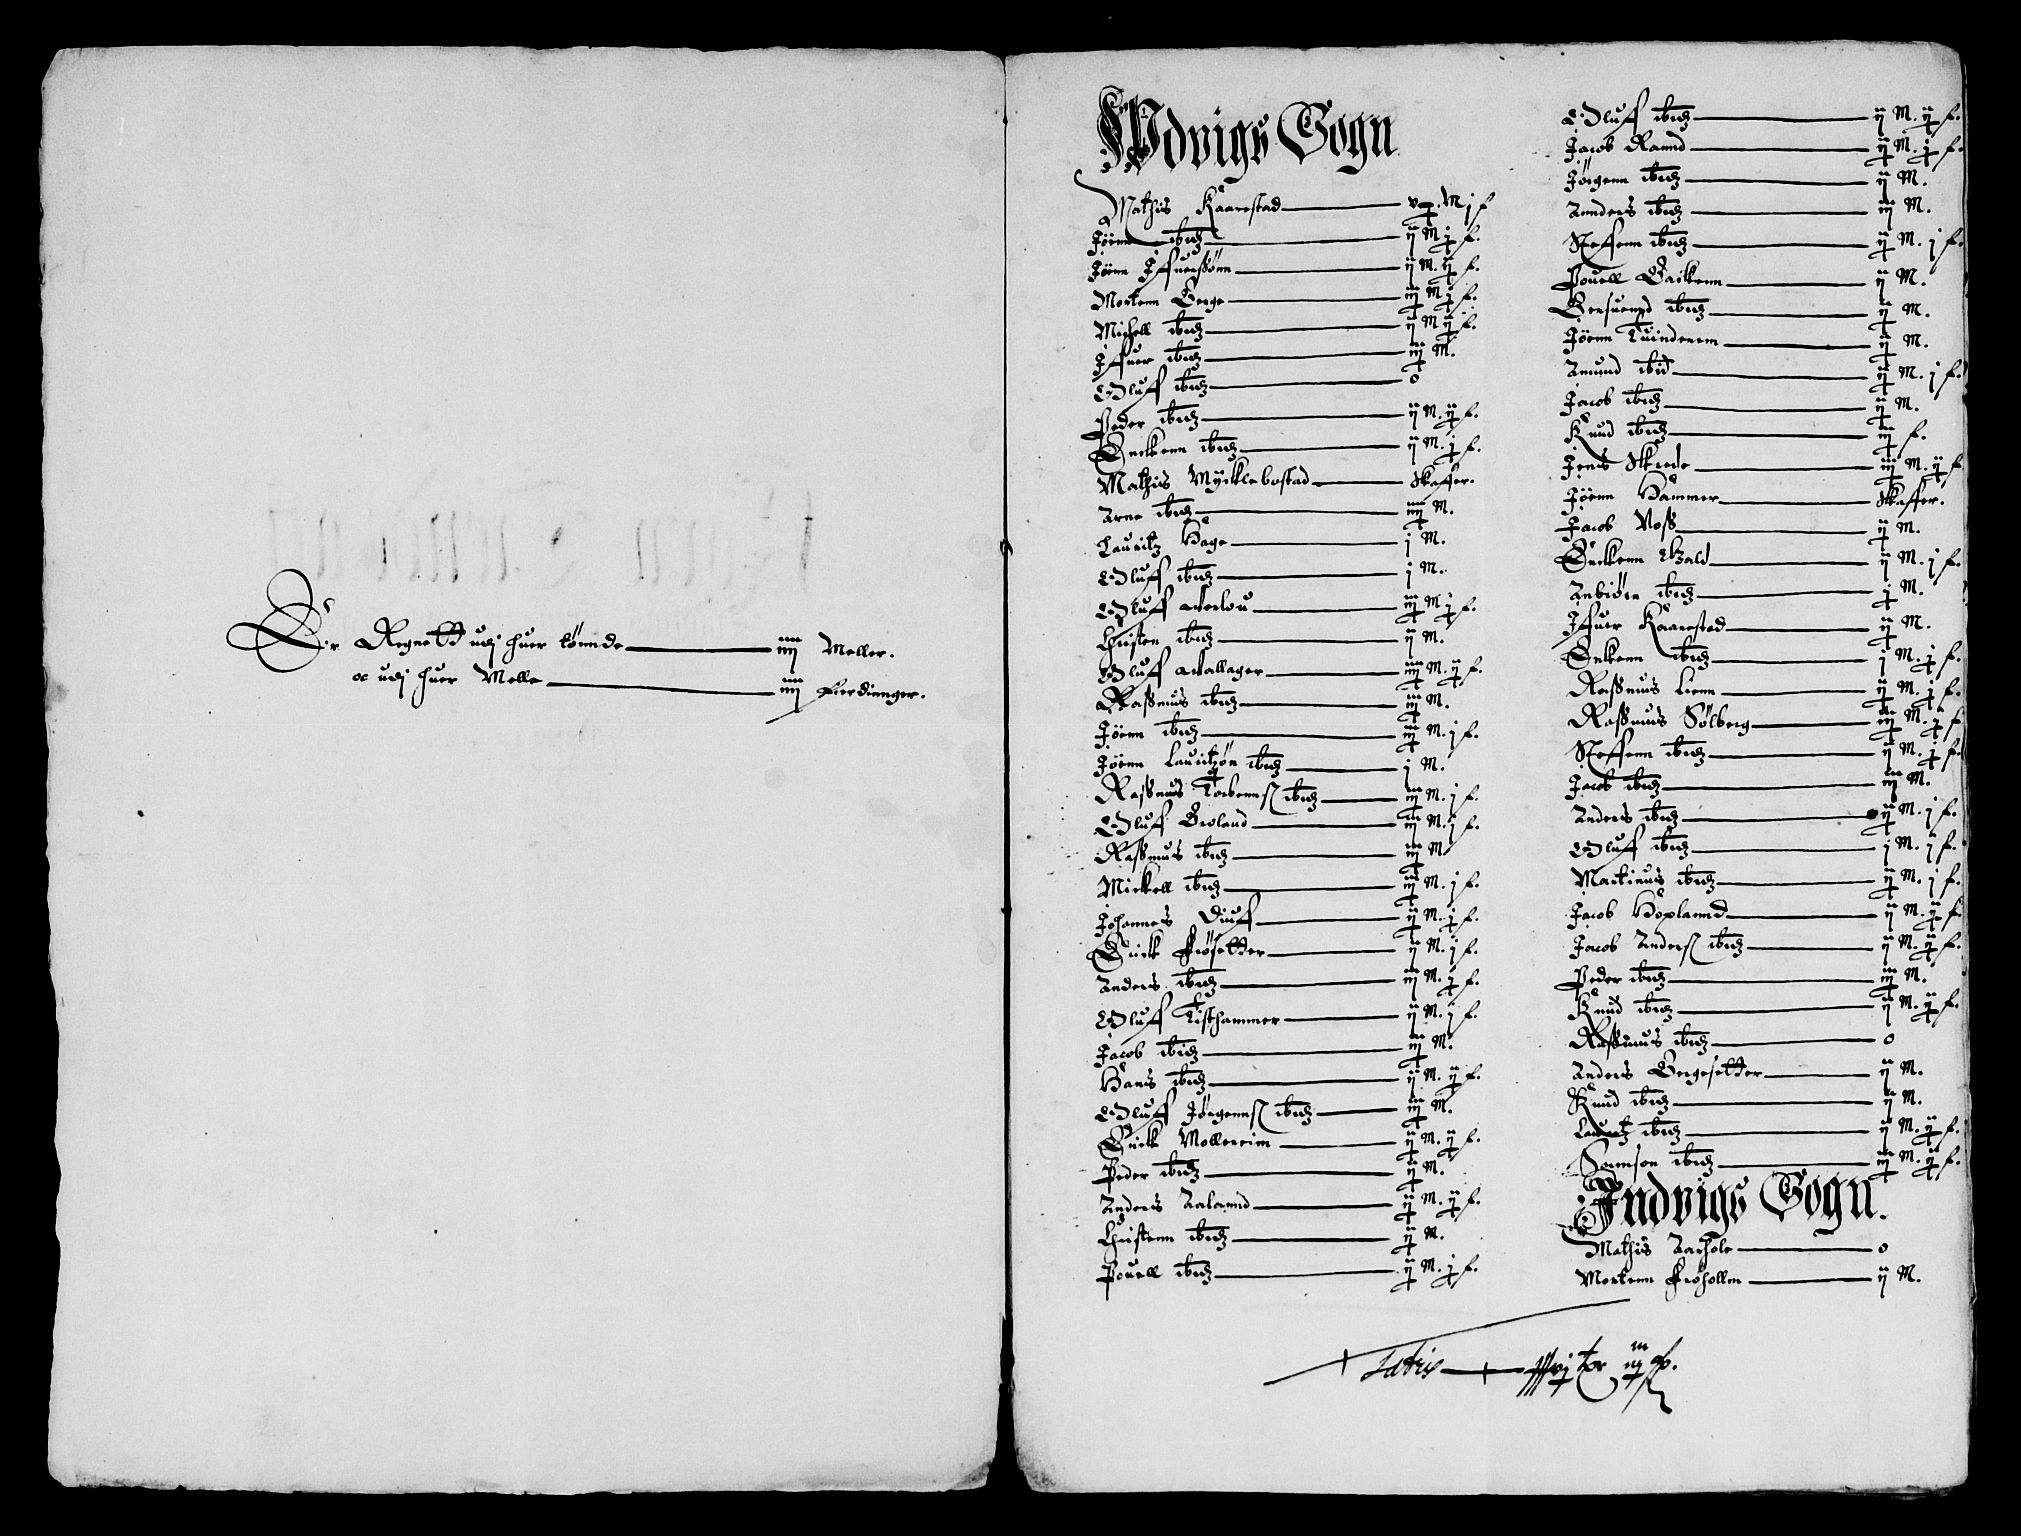 Er Regnett udj huer tönnde iiij Meller.
oc udj huer Melle iiij fierdinnger.
Udvigs Sogn
Mathis Kaarestad v M j f
Jöenn ibid ij M j f.
Jöenn Jffuerssönn ij M. ij f.
Mortenn Berge iij M j f.
Michell ibid ij M ij f.
Jffuer ibid iij M.
Oluff ibid 0
Peder ibid ij M. ij f.
Enckenn ibid ij M. j f.
Mathis Mycklebostad Skaffer.
Arne ibid iiij M.
Lauritz Hage j M.
Oluff ibid j M.
Oluff iij M j f.
Christen ibid ij M.
Oluff iiij M. ij f.
Rassmus ibid iij M.
Jöenn ibid iij M. j f.
Jöenn Lauritzön ibid j M.
Rassmus Torbenns ibid iij M. j f.
Oluff Broland iij M. j f.
Rassmus ibid iij M.
Mickell ibid iij M. j f.
Johannes ij M. j f.
Erick Frösetter ij M. j f.
Anders ibid iij M. j f.
Oluff Tisthammer ij M. j f.
Jacob ibid iij M.
Hans ibid ij M. ij f.
Oluff Jörgenns ibid iij M.
Erick Mollereim ij M. ij f.
Peder ibid ij M.
Anders Aalannd ij M. ij f.
Christenn ibid ij M.
Pouell ibid ij M. j f.
Oluff ibid ij M. ij f.
Jacob Rannd ij M. j f.
Jörgenn ibid ij M.
Annders ibid iij M.
Steffenn ibid ij M. j f.
Pouell ij M.
ibid ij M.
Jöenn Tuinderem ij M.
Amund ibid ij M. j f.
Jacob ibid ij M.
Knud ibid iij f.
Jens Skrede iij M. ij f
Jöenn Hammer Skaffer.
Jacob Noss ij M.
Enckenn Bald ij M. j f.
Anbiörn ibid j M.
Jffuer Kaarestad ij M.
Enckenn ibid j M. j f.
Rassmus Lienn ij M. j f.
Rassmus Sölberg iij M. j f
Steffenn ibid ij M. j f.
Jacob ibid iij M.
Anders ibid ij M. j f.
Oluff ibid j M. j f.
Martinus ibid ij M. j f.
Jacob Hoplannd ij M. ij f.
Jacob Anders ibid ij M. ij f.
Peder ibid iij M.
Knud ibid ij M. ij f.
Rassmus ibid 0
Anders Bergesetter ij M.
Knud ibid ij M.
Lauritz ibid ij M. ij f.
Samson ibid iij M. ij f.
Indvigs Sogn.
Mathis Aarhole 0
Mortenn Froholm ij M.
Lateris